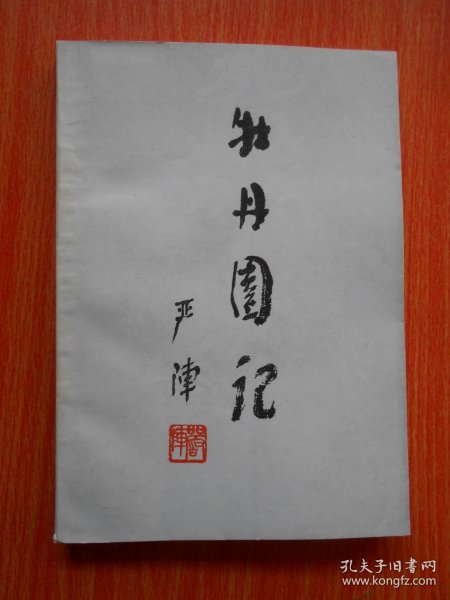 牡丹园记
严阵
孔夫子旧书网
www.kongfz.com